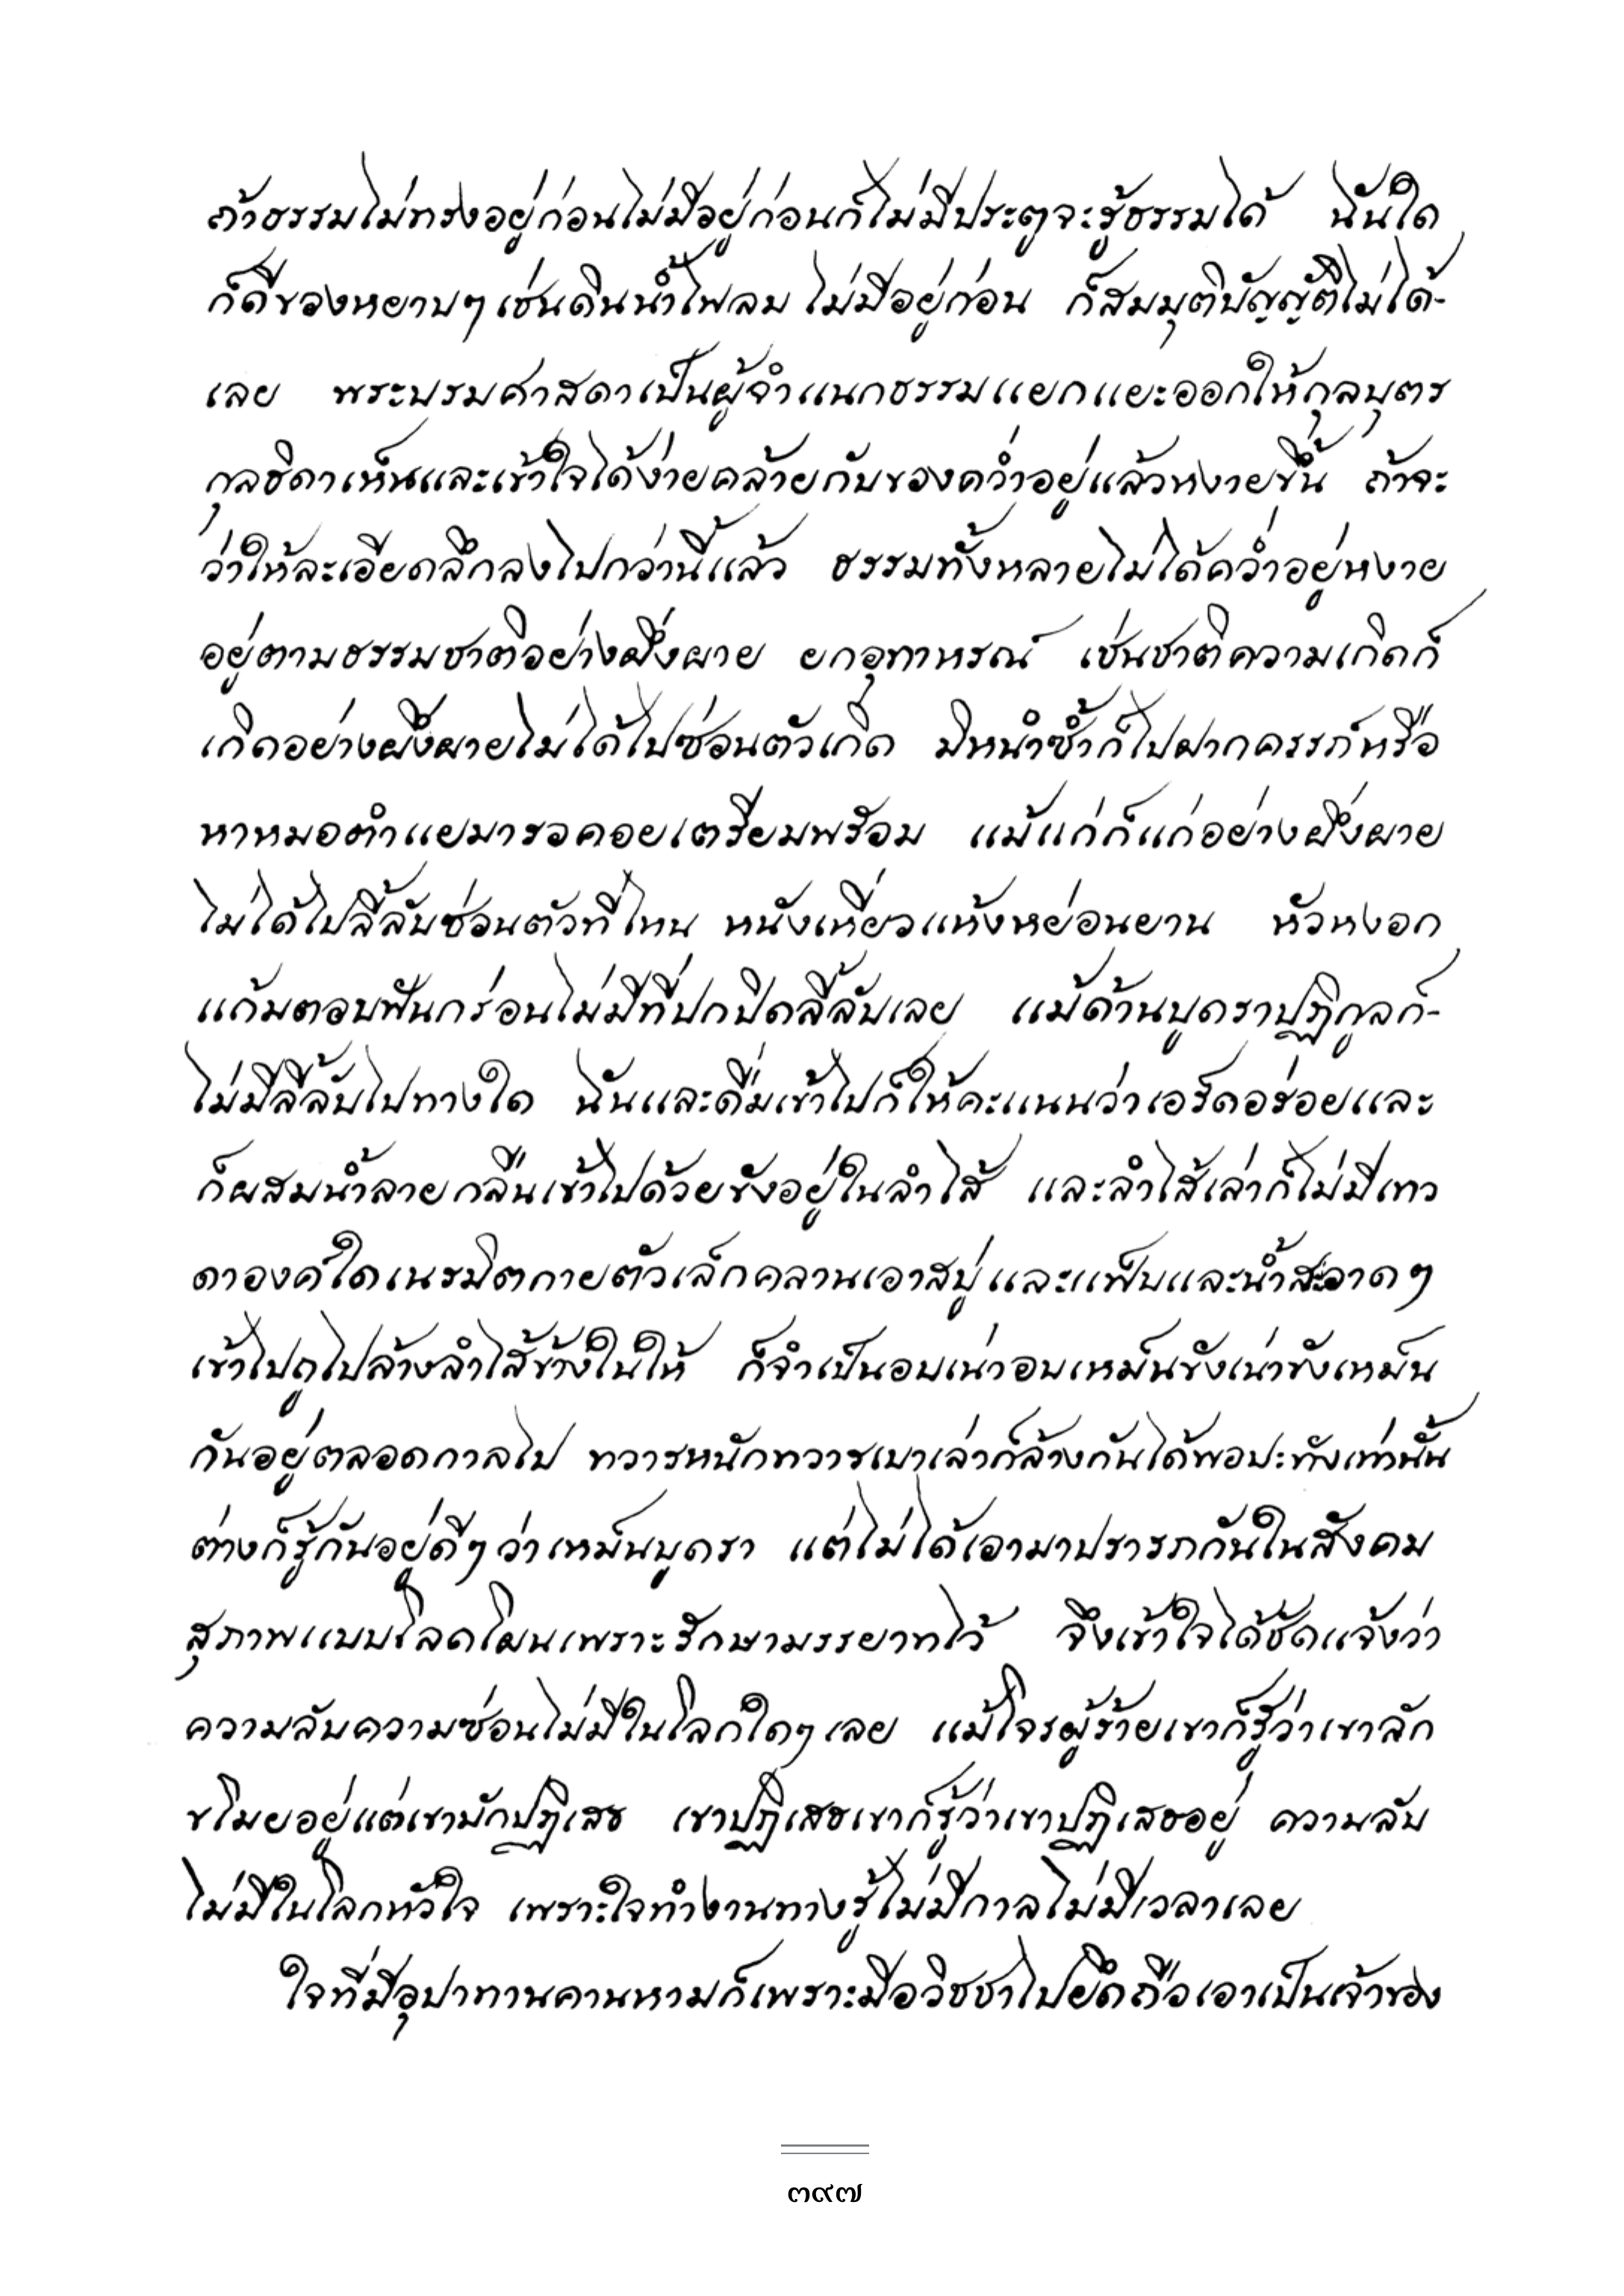 ถ้าธรรมไม่ทรงอยู่ก่อนไม่มีอยู่ก่อนก็ไม่มีประตูจะรู้ธรรมได้ ฉันใด
ก็ดีของหยาบๆ เช่นดินน้ำไฟลม ไม่มีอยู่ก่อน ก็สมมุติบัญญัติไม่ได้-
เลย พระบรมศาสดาเป็นผู้จำแนกธรรมแยกแยะออกให้กุลบุตร
กุลธิดาเห็นและเข้าใจได้ง่ายคล้ายกับของคว่ำอยู่แล้วหงายขึ้น ถ้าจะ
ว่าให้ละเอียดลึกลงไปกว่านี้แล้ว ธรรมทั้งหลายไม่ได้คว่ำอยู่หงาย
อยู่ตามธรรมชาติอย่างผึ่งผาย ยกอุทาหรณ์ เช่นชาติความเกิดก็
เกิดอย่างผึ่งผายไม่ได้ไปซ่อนตัวเกิด มิหนำซ้ำก็ไปฝากครรภ์หรือ
หาหมอตำแยมารอคอยเตรียมพร้อม แม้แก่ก็แก่อย่างผึ่งผาย
ไม่ได้ไปลี้ลับซ่อนตัวที่ไหน หนังเหี่ยวแห้งหย่อนยาน หัวหงอก
แก้มตอบฟันกร่อนไม่มีที่ปกปิดลี้ลับเลย แม้ด้านบูดราปฏิกูลก็-
ไม่มีลี้ลับไปทางใด ฉันและดื่มเข้าไปก็ให้คะแนนว่าเอร็ดอร่อยและ
ก็ผสมน้ำลายกลืนเข้าไปด้วยขังอยู่ในลำไส้ และลำไส้เล่าก็ไม่มีเทว
ดาองค์ใดเนรมิตกายตัวเล็กคลานเอาสบู่และแฟ้บและน้ำสะอาดๆ
เข้าไปถูไปล้างลำไส้ข้างในให้ ก็จำเป็นอบเน่าอบเหม็นขังเน่าขังเหม็น
กันอยู่ตลอดกาลไป ทวารหนักทวารเบาเล่าก็ล้างกันได้พอปะทังเท่านั้น
ต่างก็รู้กันอยู่ดีๆ ว่าเหม็นบูดรา แต่ไม่ได้เอามาปรารภกันในสังคม
สุภาพแบบโลดโผนเพราะรักษามรรยาทไว้ จึงเข้าใจได้ชัดแจ้งว่า
ความลับความซ่อนไม่มีในโลกใดๆ เลย แม้โจรผู้ร้ายเขาก็รู้ว่าเขาลัก
ขโมยอยู่แต่เขามักปฏิเสธ เขาปฏิเสธเขาก็รู้ว่าเขาปฏิเสธอยู่ ความลับ
ไม่มีในโลกหัวใจ เพราะใจทำงานทางรู้ไม่มีกาลไม่มีเวลาเลย
ใจที่มีอุปาทานคานหามก็เพราะมีอวิชชาไปยึดถือเอาเป็นเจ้าของ
๓๙๗